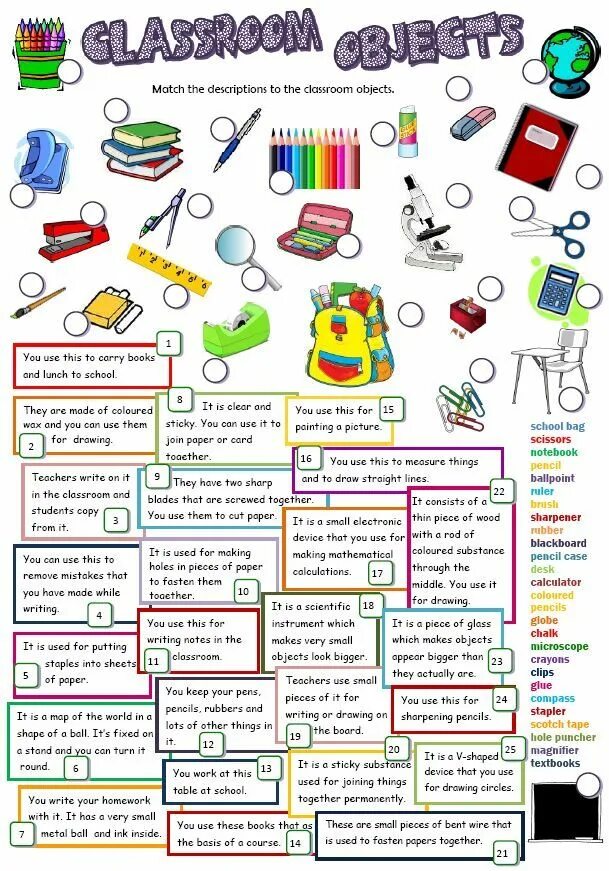 CLASSROOM OBJECTS
Match the descriptions to the classroom objects.
1
You use this to carry books
and lunch to school.
They are made of coloured
wax and you can use them
for drawing.
2
8
It is clear and
sticky. You can use it to
join paper or card
together.
You use this for
painting a picture.
15
Teachers write on it
in the classroom and
students copy
from it.
3
9
They have two sharp
blades that are screwed together.
You use them to cut paper.
16
You use this to measure things
and to draw straight lines.
22
It consists of a
thin piece of wood
with a rod of
coloured substance
through the
middle. You use it
for drawing.
You can use this to
remove mistakes that
you have made while
writing.
4
It is used for making
holes in pieces of paper
to fasten them
together.
10
It is a small electronic
device that you use for
making mathematical
calculations.
17
It is used for putting
staples into sheets
of paper.
5
You use this for
writing notes in the
classroom.
11
18
It is a scientific
instrument which
makes very small
objects look bigger.
It is a piece of glass
which makes objects
appear bigger than
they actually are.
23
It is a map of the world in a
shape of a ball. It's fixed on
a stand and you can turn it
round.
6
You keep your pens,
pencils, rubbers and
lots of other things in
it.
12
Teachers use small
pieces of it for
writing or drawing on
the board.
19
You use this for
sharpening pencils.
24
You work at this
table at school.
13
20
It is a sticky substance
used for joining things
together permanently.
25
It is a V-shaped
device that you use
for drawing circles.
You write your homework
with it. It has a very small
metal ball and ink inside.
7
You use these books that as
the basis of a course.
14
These are small pieces of bent wire that
is used to fasten papers together.
21
school bag
scissors
notebook
pencil
ballpoint
ruler
brush
sharpener
rubber
blackboard
pencil case
desk
calculator
coloured
pencils
globe
chalk
microscope
crayons
clips
glue
compass
stapler
scotch tape
hole puncher
magnifier
textbooks
1 2 3 4 5 6